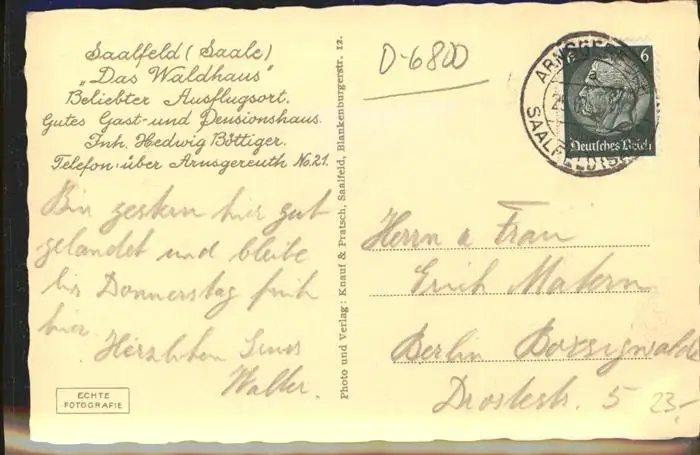 Saalfeld (Saale)
„Das Waldhaus"
Beliebter Ausflugsort.
Gutes Gast- und Pensionshaus.
Inh. Hedwig Böttiger.
Telefon: über Arnsgereuth No. 21.
Bin gestern hier gut
gelandet und bleibe
bis Donnerstag früh
hier.
Herzlichen Gruss
Walter.
ECHTE
FOTOGRAFIE
Photo und Verlag: Knauf & Pratsch, Saalfeld, Blankenburgerstr. 12.
D-6800
6
Deutsches Reich
SAALFELD (S
Herrn u Frau
Erich Matern
Berlin Borsigwalde
Drostestr. 5
23,-